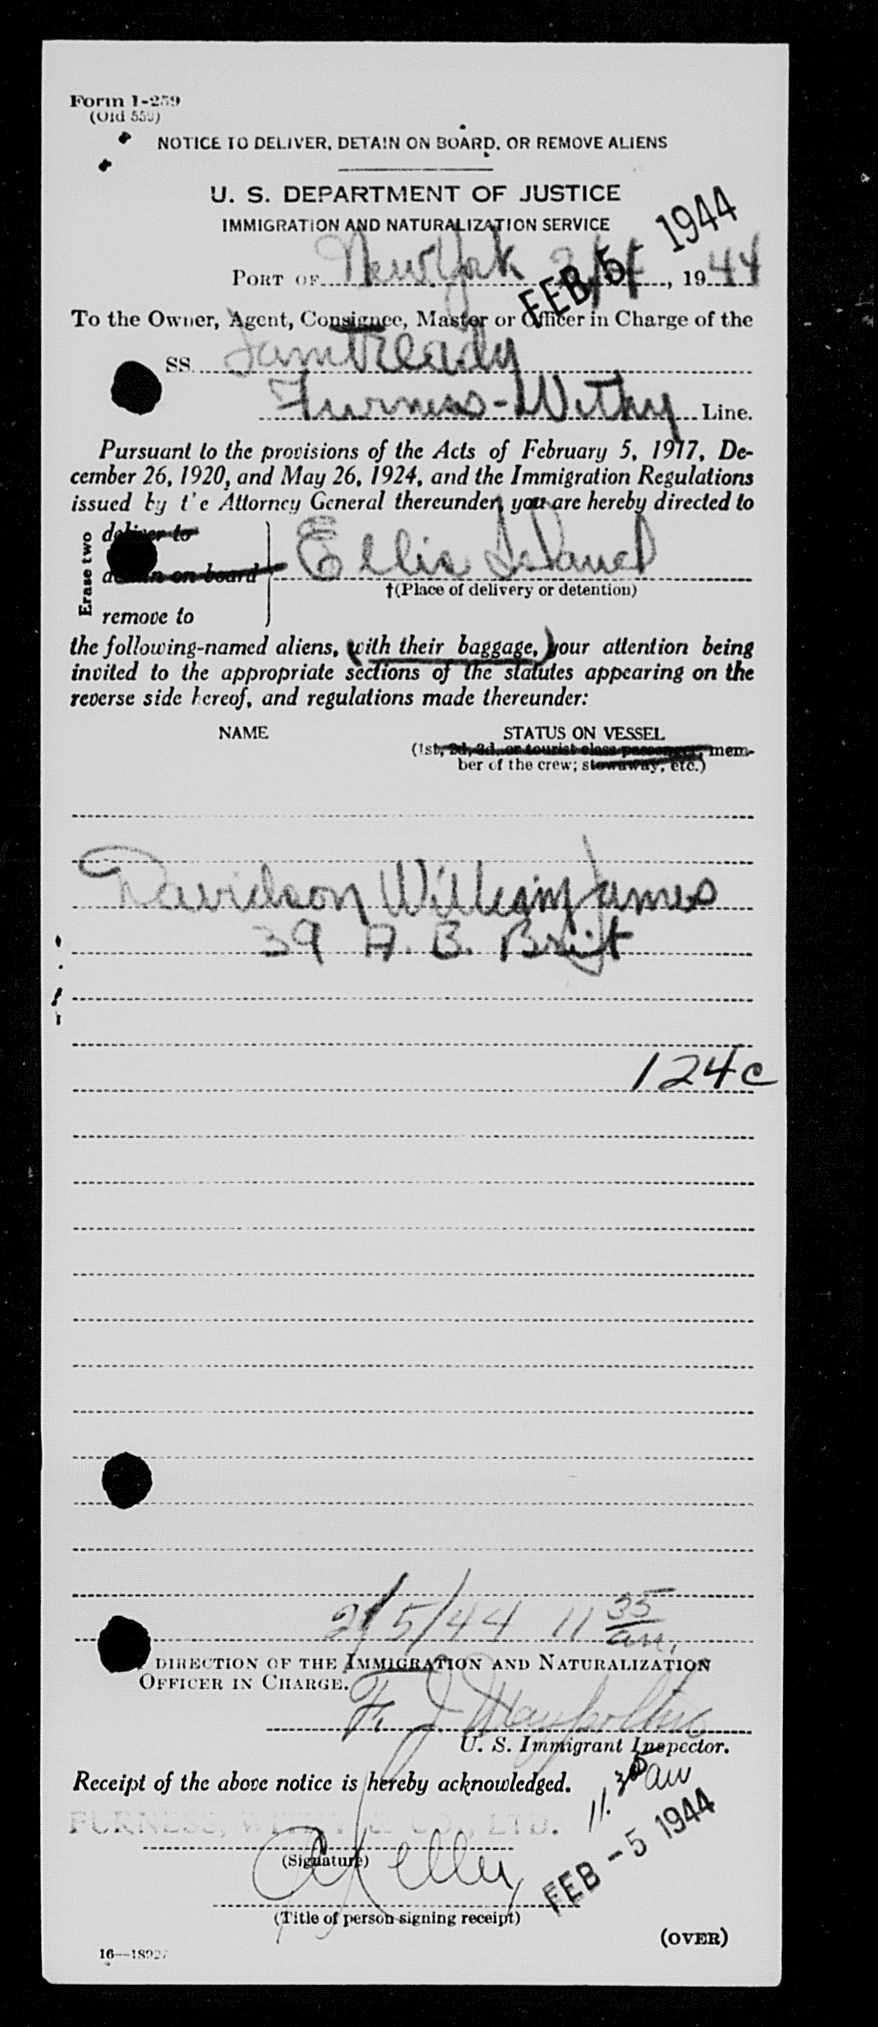 Form I-259
(Old 559)
NOTICE TO DELIVER, DETAIN ON BOARD, OR REMOVE ALIENS
U. S. DEPARTMENT OF JUSTICE
IMMIGRATION AND NATURALIZATION SERVICE
FEB 5 - 1944
PORT OF New York 2/5/, 1944
To the Owner, Agent, Consignee, Master or Officer in Charge of the
SS. Samtready
Furness-Withy Line.
Pursuant to the provisions of the Acts of February 5, 1917, De-
cember 26, 1920, and May 26, 1924, and the Immigration Regulations
issued by t'e Attorney General thereunder, you are hereby directed to
Erase two
deliver to
detain on board
remove to
Ellis Island
†(Place of delivery or detention)
the following-named aliens, (with their baggage,) your attention being
invited to the appropriate sections of the statutes appearing on the
reverse side hereof, and regulations made thereunder:
NAME STATUS ON VESSEL
(1st, 2d, 3d, or tourist class passenger, mem-
ber of the crew; stowaway, etc.)
Davidson William James
39 A. B. Brit
124c
2/5/44 11 35 am.
DIRECTION OF THE IMMIGRATION AND NATURALIZATION
OFFICER IN CHARGE.
F. J.
U. S. Immigrant Inspector.
Receipt of the above notice is hereby acknowledged.
11.35 am
FURNESS, WITHY & CO., LTD.
FEB - 5 1944
(Signature)
Kelly
(Title of person signing receipt)
(OVER)
16—18927